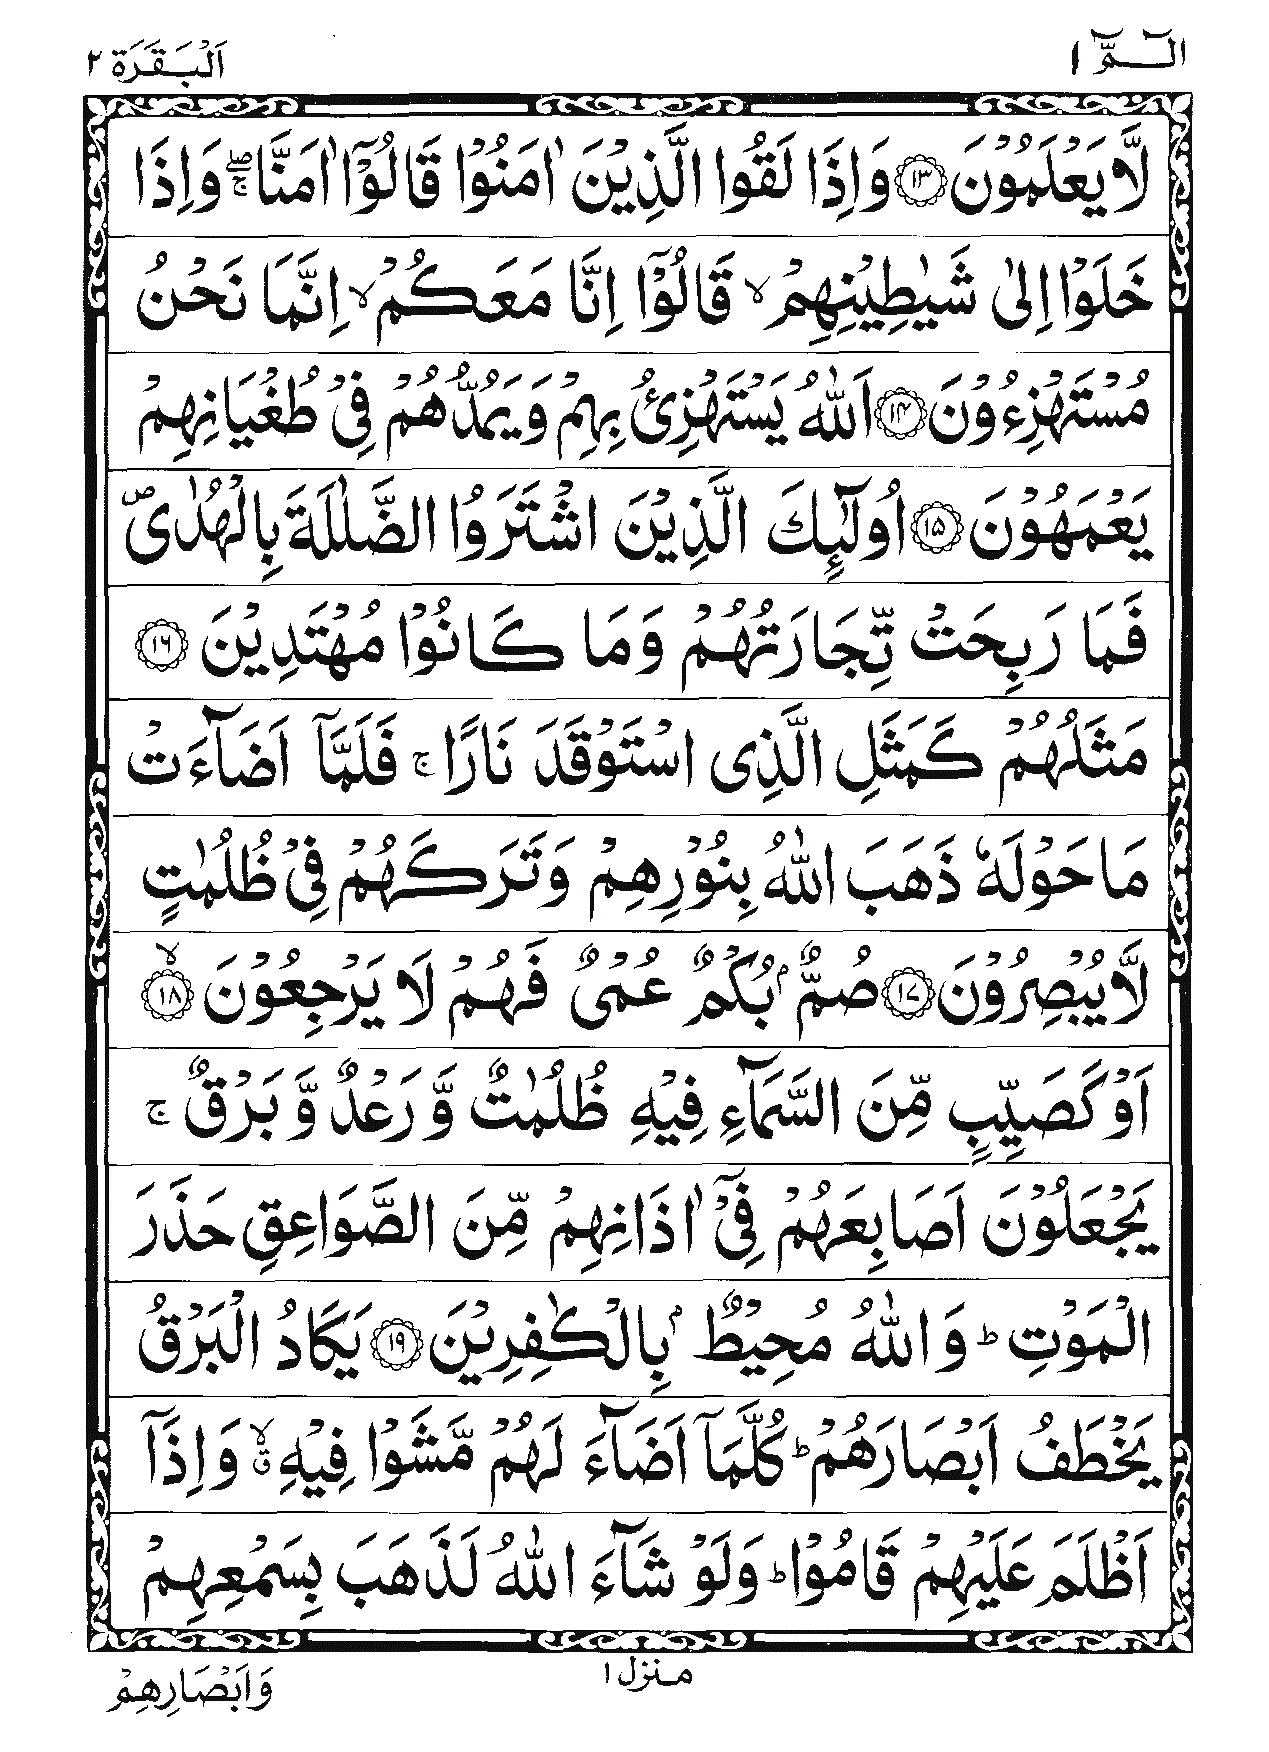 الٓـمّٓ ١
اَلْبَقَرَة ٢
لَّا يَعْلَمُوْنَ ﴿۱۳﴾ وَاِذَا لَقُوا الَّذِيْنَ اٰمَنُوْا قَالُوْٓا اٰمَنَّا ۚۖ وَاِذَا
خَلَوْا اِلٰى شَيٰطِيْنِهِمْ ۙ قَالُوْٓا اِنَّا مَعَكُمْ ۙ اِنَّمَا نَحْنُ
مُسْتَهْزِءُوْنَ ﴿۱۴﴾ اَللّٰهُ يَسْتَهْزِئُ بِهِمْ وَيَمُدُّهُمْ فِيْ طُغْيَانِهِمْ
يَعْمَهُوْنَ ﴿۱۵﴾ اُولٰٓئِكَ الَّذِيْنَ اشْتَرَوُا الضَّلٰلَةَ بِالْهُدٰى ۪
فَمَا رَبِحَتْ تِّجَارَتُهُمْ وَمَا كَانُوْا مُهْتَدِيْنَ ﴿۱۶﴾
مَثَلُهُمْ كَمَثَلِ الَّذِى اسْتَوْقَدَ نَارًا ۚ فَلَمَّآ اَضَآءَتْ
مَا حَوْلَهٗ ذَهَبَ اللّٰهُ بِنُوْرِهِمْ وَتَرَكَهُمْ فِيْ ظُلُمٰتٍ
لَّا يُبْصِرُوْنَ ﴿۱۷﴾ صُمٌّۢ بُكْمٌ عُمْىٌ فَهُمْ لَا يَرْجِعُوْنَ ۙ ﴿۱۸﴾
اَوْ كَصَيِّبٍ مِّنَ السَّمَآءِ فِيْهِ ظُلُمٰتٌ وَّرَعْدٌ وَّبَرْقٌ ۚ
يَجْعَلُوْنَ اَصَابِعَهُمْ فِيْٓ اٰذَانِهِمْ مِّنَ الصَّوَاعِقِ حَذَرَ
الْمَوْتِ ؕ وَاللّٰهُ مُحِيْطٌۢ بِالْكٰفِرِيْنَ ﴿۱۹﴾ يَكَادُ الْبَرْقُ
يَخْطَفُ اَبْصَارَهُمْ ؕ كُلَّمَآ اَضَآءَ لَهُمْ مَّشَوْا فِيْهِ ۙق وَاِذَآ
اَظْلَمَ عَلَيْهِمْ قَامُوْا ؕ وَلَوْ شَآءَ اللّٰهُ لَذَهَبَ بِسَمْعِهِمْ
منزل ١
وَاَبْصَارِهِمْ